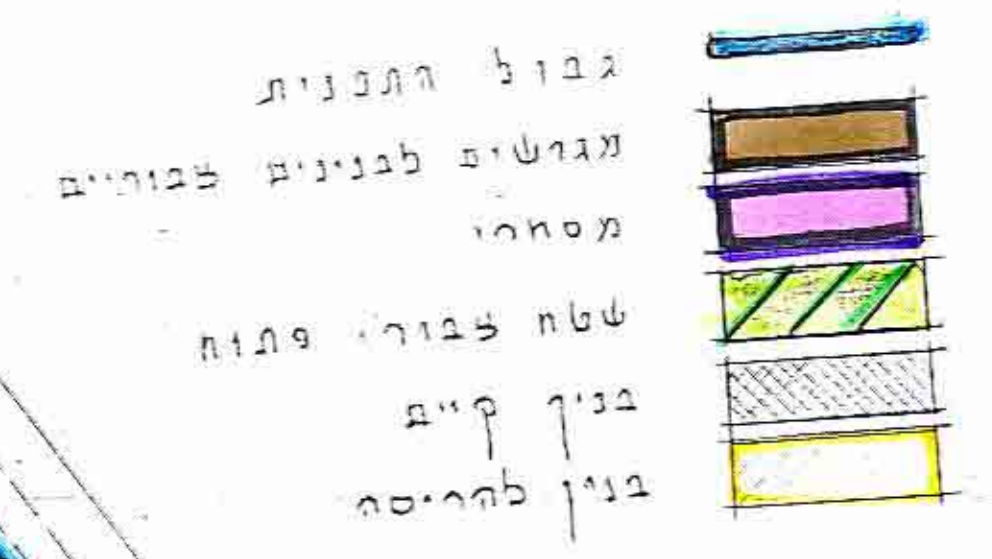 גבול התכנית
מגרשים לבנינים צבוריים
מסחרי
שטח צבורי פתוח
בנין קיים
בנין להריסה